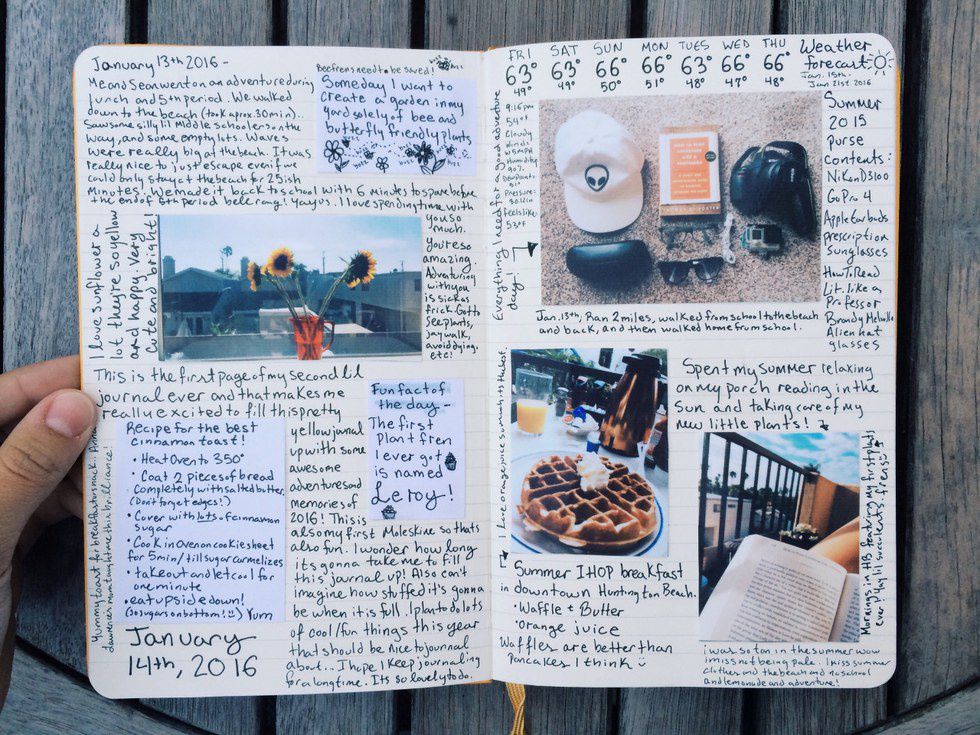 January 13th 2016 -
Me and Sean went on an adventure during
lunch and 5th period. We walked
down to the beach (took aprox. 30min)..
Saw some silly lil Middle schoolers on the
way, and some empty lots. Waves
were really big at the beach. It was
really nice to just escape even if we
could only stay at the beach for 25ish
minutes! We made it back to school with 6 minutes to spare before
the end of 6th period bell rang! Yay us. I love spending time with
you so
much.
you're so
amazing.
Adventuring
with you
is sick as
frick. Got to
see plants,
jay walk,
avoid dying,
etc!
Bee frens need to be saved!
Someday I want to
create a garden in my
yard solely of bee and
butterfly friendly plants
I love sunflower a
lot they're so yellow
and happy. Very
cute and bright!
This is the first page of my second lil
journal ever and that makes me
really excited to fill this pretty
yellow journal
up with some
awesome
adventures and
memories of
2016! This is
also my first Moleskine so thats
also fun. I wonder how long
its gonna take me to fill
this journal up! Also can't
imagine how stuffed it's gonna
be when it is full. I plan to do lots
of cool/fun things this year
that should be nice to journal
about.. I hope I keep journaling
for a long time. Its so lovely to do.
Fun fact of
the day -
The first
plant fren
I ever got
is named
Leroy!
Recipe for the best
cinnamon toast!
• Heat Oven to 350°
• Coat 2 pieces of bread
completely with salted butter.
(Don't forget edges!)
• Cover with lots of cinnamon
sugar
• Cook in oven on cookie sheet
for 5min/till sugar carmelizes
• take out and let cool for
one minute
• eat upside down!
(so sugars on bottom!☺) Yum
Yummy toast for breakfast or snack.
January
14th, 2016
FRI SAT SUN MON TUES WED THU
63° 63° 66° 66° 63° 66° 66°
49° 49° 50° 51° 48° 47° 48°
Weather
forecast
Jan. 15th -
Jan 21st 2016
9:16pm
54°F
Cloudy
Winds:
Humidity
90%
Dewpoint:
51°
Pressure:
30.12in
feels like
53°F
Everything I need for a good adventure
day!
Summer
2015
purse
Contents:
Nikon D3100
GoPro 4
Apple earbuds
prescription
Sunglasses
How To Read
Lit. like a
Professor
Brandy Melville
Alien hat
glasses
Jan. 13th, Ran 2 miles, walked from school to the beach
and back, and then walked home from school.
I love orange juice so much its the best.
Summer IHOP breakfast
in downtown Huntington Beach.
• Waffle + Butter
• orange juice
Waffles are better than
Pancakes I think ☺
Spent my summer relaxing
on my porch reading in the
sun and taking care of my
new little plants!
Mornings in HB featuring my first plants
ever! Yay lil succulents, frens
i was so tan in the summer wow
i miss not being pale. I miss summer
clothes and the beach and no school
and lemonade and adventure!